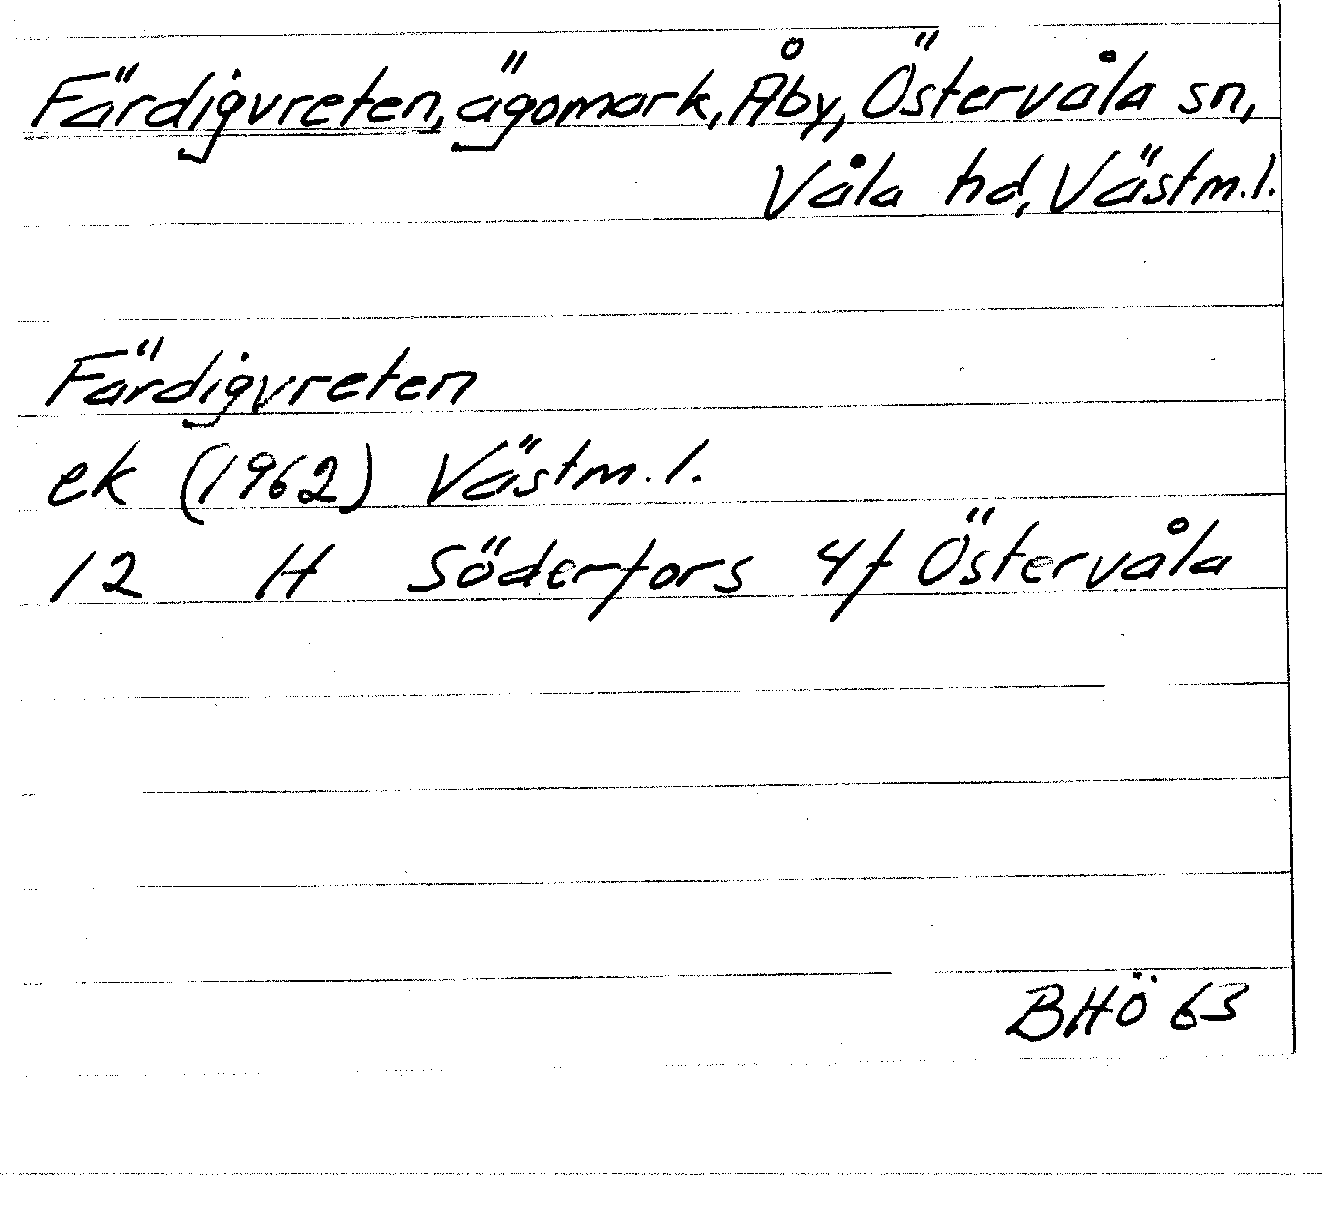 Färdigvreten, ägomark, Åby, Östervåla sn,
Våla hd, Västm.l.
Färdigvreten
ek (1962) Västm.l.
12 H Söderfors 4f Östervåla
BHÖ 63